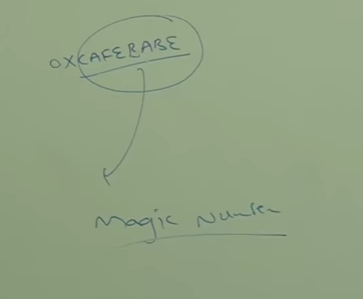 0XCAFEBABE
Magic Number